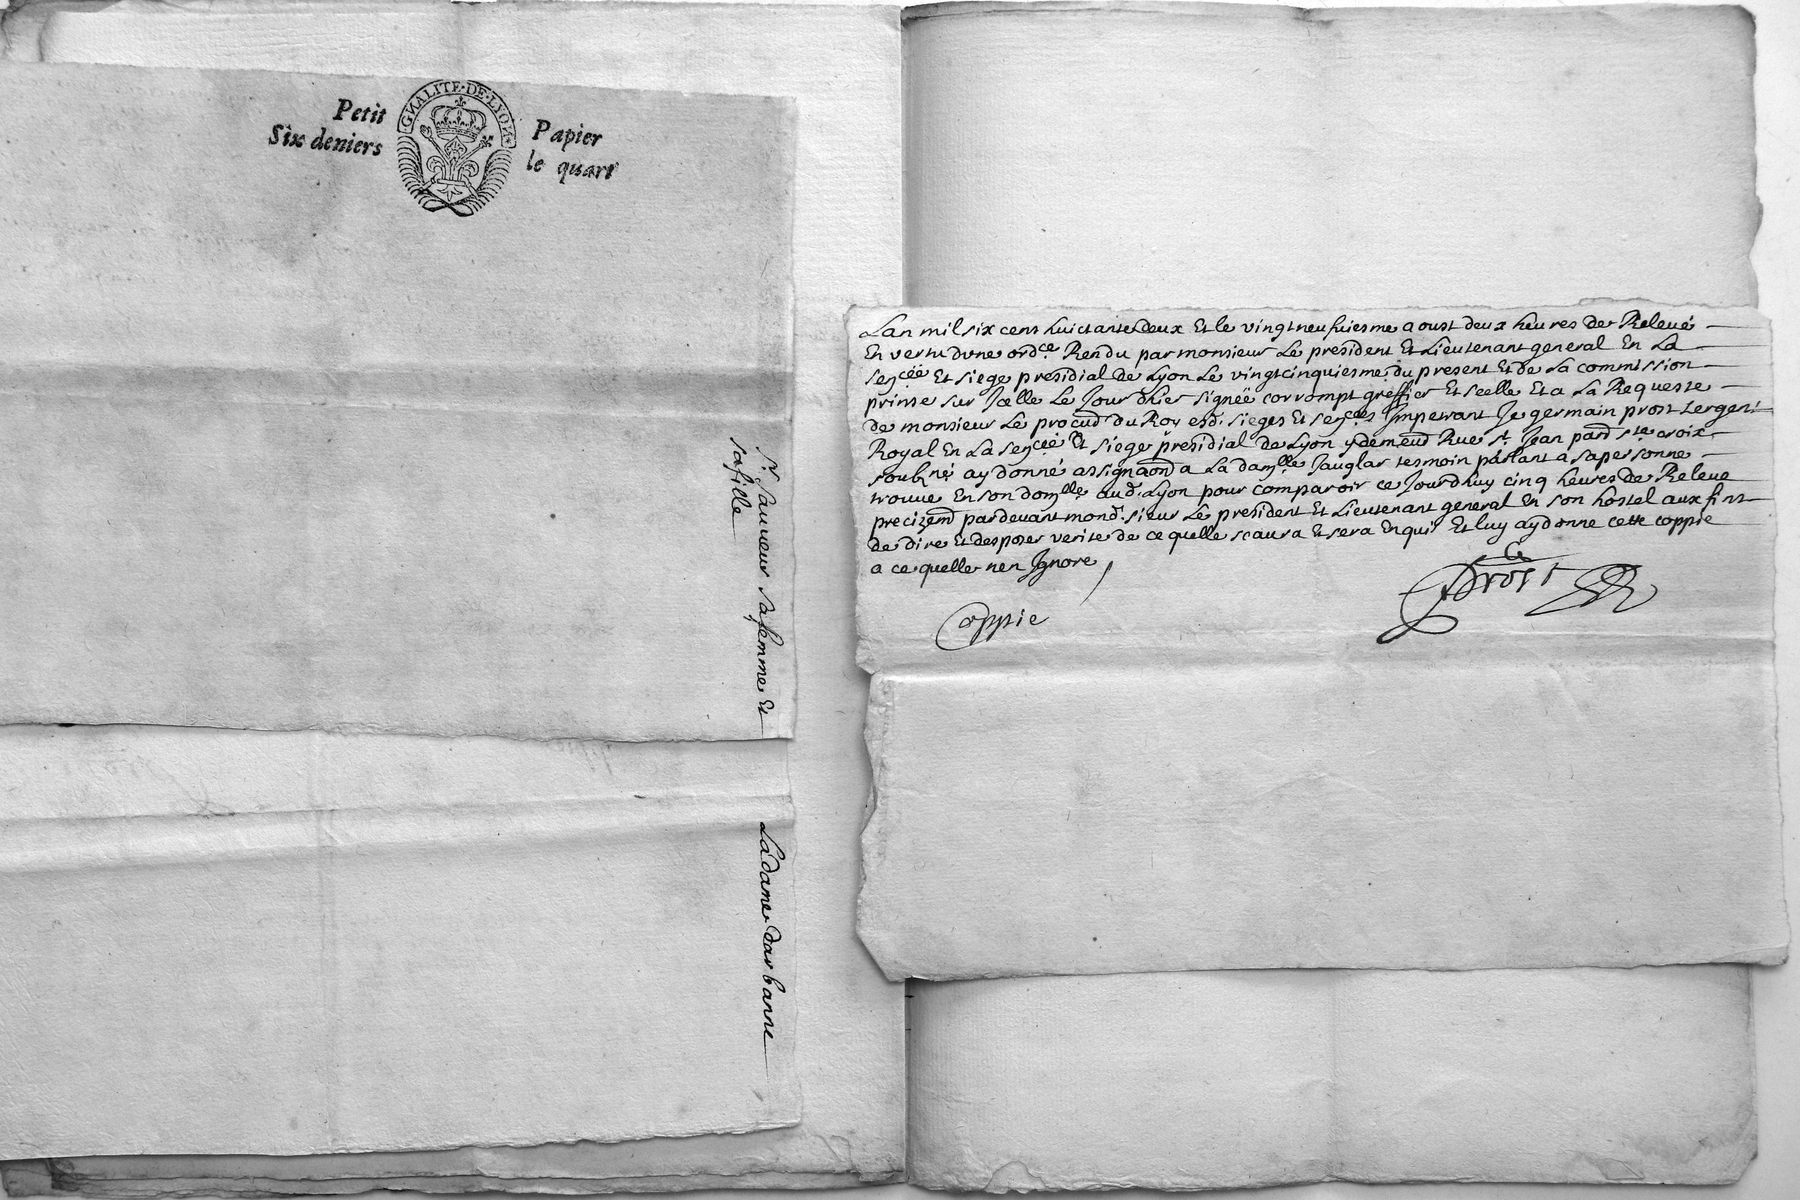 GNALITE·DE·LYON
Petit Papier
Six deniers le quart
Sr. Sauveur sa femme Et
sa fille
La dame darbanne
Lan mil six cens huictante deux Et le vingt neufviesme aoust deux heures de Relevé
En vertu dune ordce Rendu par monsieur Le president Et Lieutenant general En La
sencéé Et siege presidial de Lyon Le vingtcinquiesme du present Et de La commission
prinse sur Jcelle Le Jour dhier signéé corrompt greffier Et scelle Et a La Requeste
de monsieur Le procud du Roy esd. sieges Et sencées Jmpetrant Je germain prost sergent
Royal En La sencéé Et siege presidial de Lyon y demeud Rue st. Jean pard ste croix
soubné ay donné assignaon a La damlle Jauglas tesmoin parlant a sa personne
trouvé En son domlle aud. Lyon pour comparoir ce Jourdhuy cinq heures de Releve
precizemd pardevant mond. sieur Le president Et Lieutenant general En son hostel aux fins
de dire Et desposer verite de ce quelle scaura Et sera Enquis Et luy ay donne cette coppie
a ce quelle nen Jgnore
Coppie
Prost